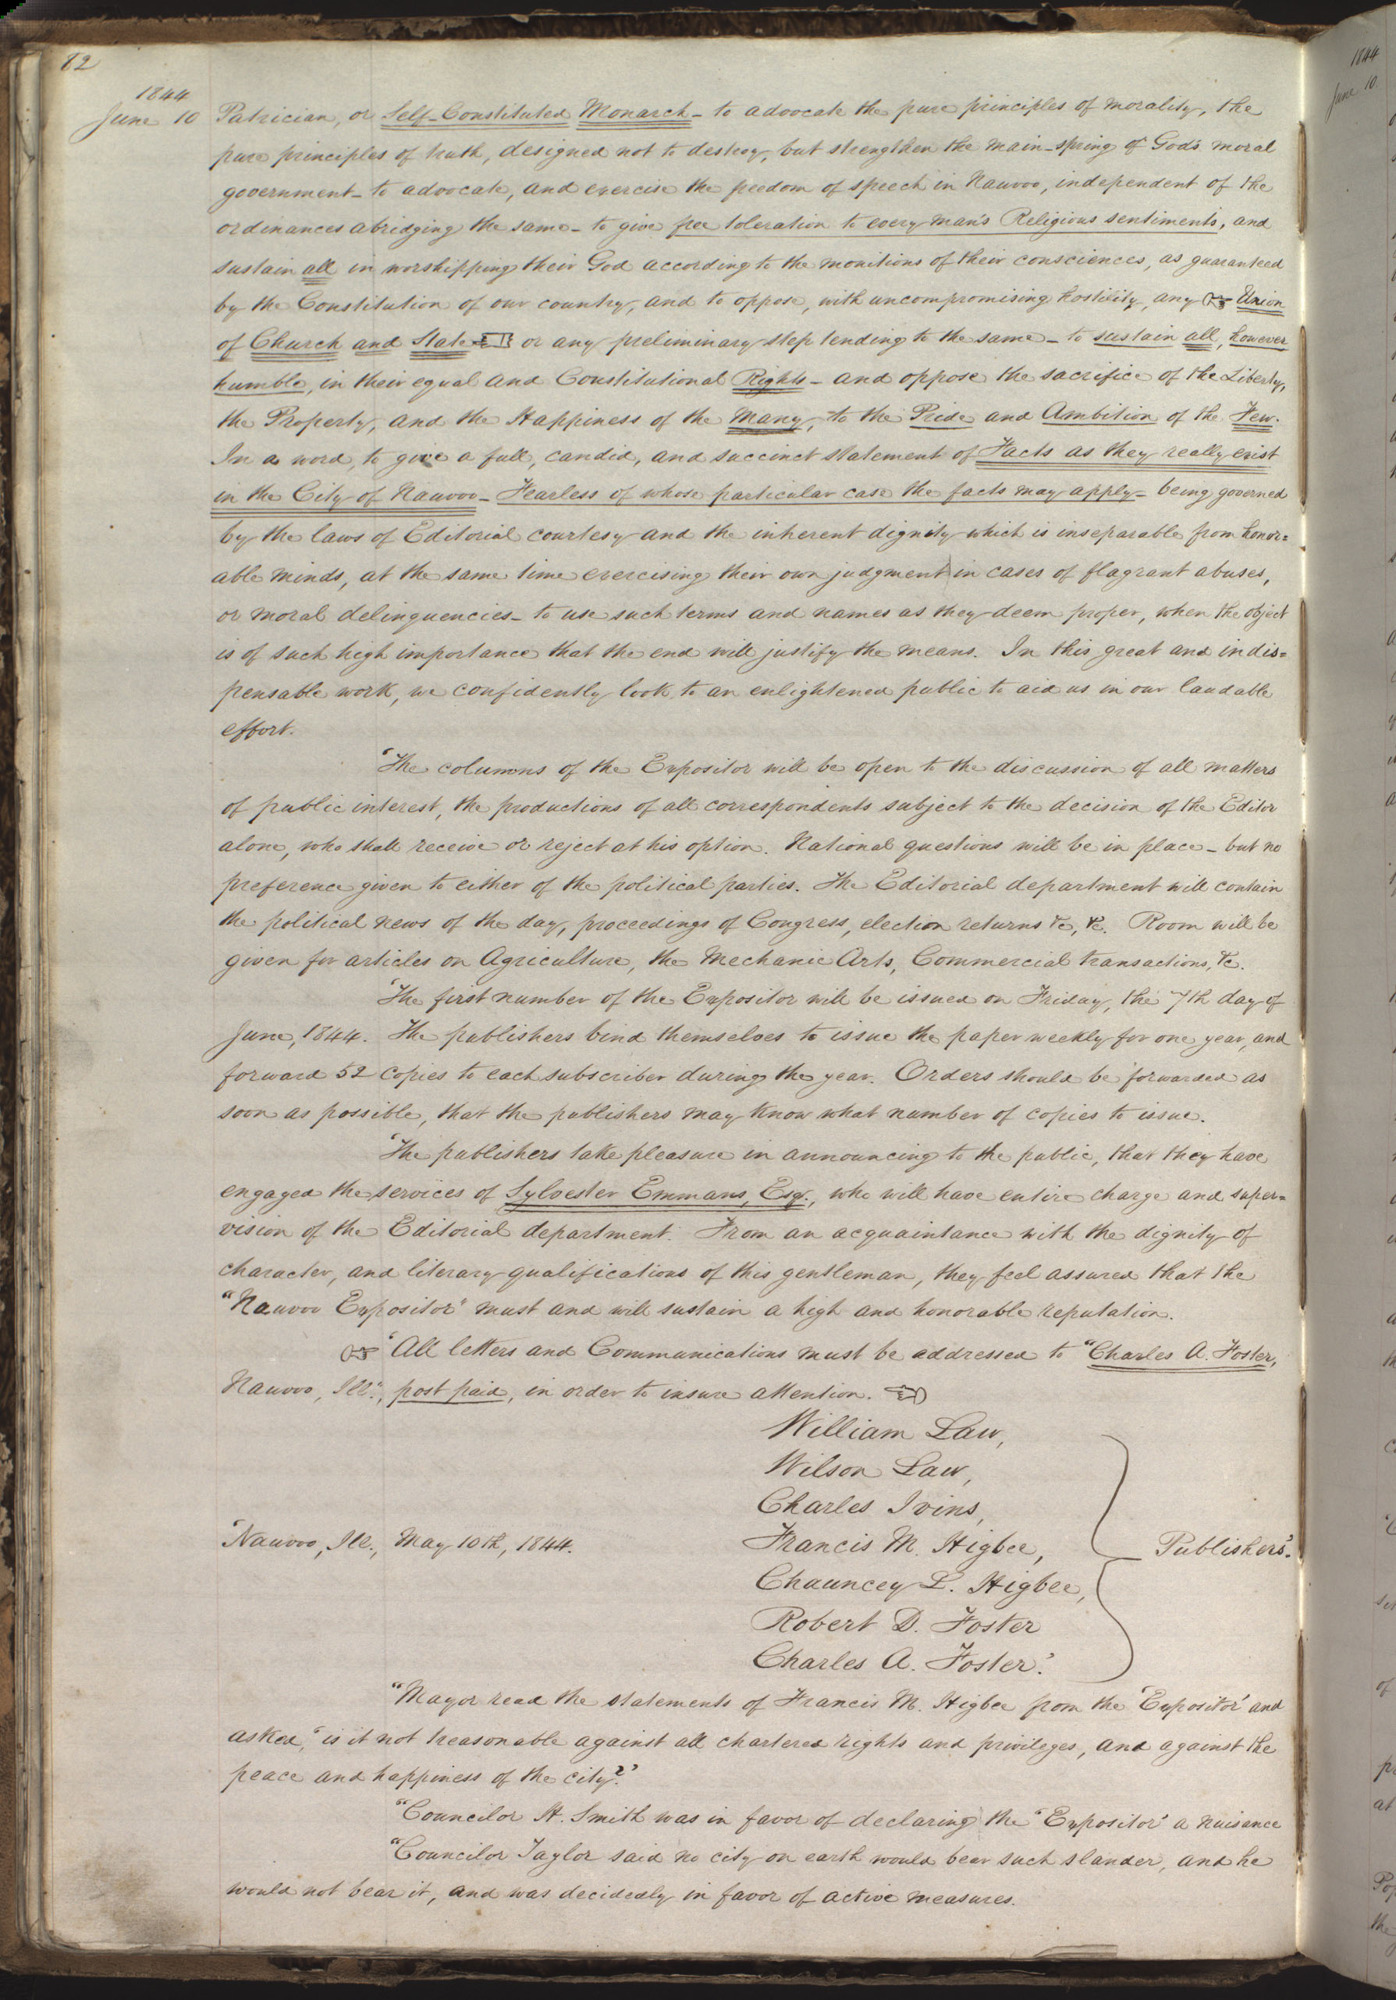 82
1844
June 10 Patrician, or Self-Constituted Monarch – to advocate the pure principles of morality, the
pure principles of truth, designed not to destroy, but strengthen the main-spring of God's moral
government – to advocate, and exercise the freedom of speech in Nauvoo, independent of the
ordinances abridging the same – to give free toleration to every man's Religious sentiments, and
sustain all in worshipping their God according to the monitions of their consciences, as guaranteed
by the Constitution of our country, and to oppose, with uncompromising hostility, any ☞ Union
of Church and State ☜ or any preliminary step tending to the same – to sustain all, however
humble, in their equal and Constitutional Rights – and oppose the sacrifice of the Liberty,
the Property, and the Happiness of the Many, to the Pride and Ambition of the Few.
In a word, to give a full, candid, and succinct statement of Facts as they really exist
in the City of Nauvoo – Fearless of whose particular case the facts may apply – being governed
by the laws of Editorial courtesy and the inherent dignity which is inseparable from honor=
able minds, at the same time exercising their own judgment in cases of flagrant abuses,
or moral delinquencies – to use such terms and names as they deem proper, when the object
is of such high importance that the end will justify the means. In this great and indis=
pensable work, we confidently look to an enlightened public to aid us in our laudable
effort.
'The columns of the Expositor will be open to the discussion of all matters
of public interest, the productions of all correspondents subject to the decision of the Editor
alone, who shall receive or reject at his option. National questions will be in place – but no
preference given to either of the political parties. The Editorial department will contain
the political news of the day, proceedings of Congress, election returns &c, &c. Room will be
given for articles on Agriculture, the Mechanic Arts, Commercial transactions, &c.
'The first number of the Expositor will be issued on Friday, the 7th day of
June, 1844. The publishers bind themselves to issue the paper weekly for one year, and
forward 52 copies to each subscriber during the year. Orders should be forwarded as
soon as possible, that the publishers may know what number of copies to issue.
'The publishers take pleasure in announcing to the public, that they have
engaged the services of Sylvester Emmans, Esq., who will have entire charge and super=
vision of the Editorial department. From an acquaintance with the dignity of
character, and literary qualifications of this gentleman, they feel assured that the
"Nauvoo Expositor" must and will sustain a high and honorable reputation.
☞ 'All letters and Communications must be addressed to "Charles A. Foster,
Nauvoo, Ill.", post paid, in order to insure attention. ☜
William Law,
Wilson Law,
Charles Ivins,
'Nauvoo, Ill., May 10th, 1844. Francis M. Higbee, Publishers'.
Chauncey L. Higbee,
Robert D. Foster
Charles A. Foster.'
"Mayor read the statements of Francis M. Higbee from the 'Expositor' and
asked, 'is it not treasonable against all chartered rights and privileges, and against the
peace and happiness of the city?'
"Councilor H. Smith was in favor of declaring the 'Expositor' a nuisance
"Councilor Taylor said no city on earth would bear such slander, and he
would not bear it, and was decidedly in favor of active measures.
1844
June 10.